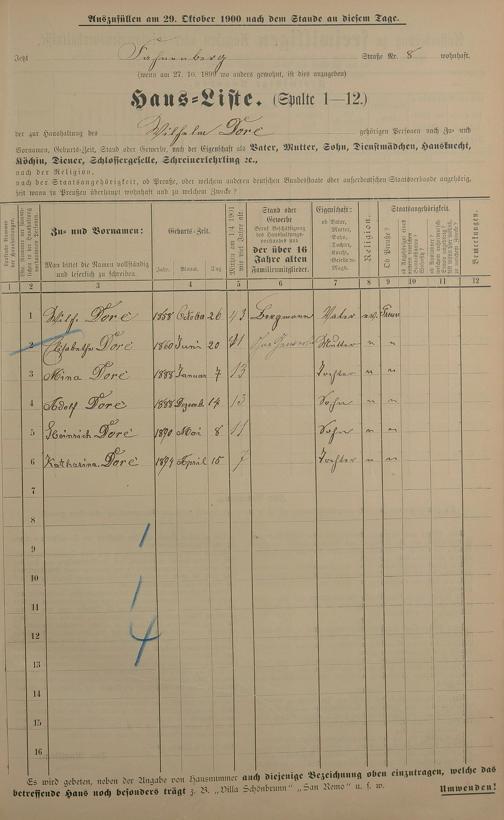 Auszufüllen am 29. Oktober 1900 nach dem Stande an diesem Tage.
Jetzt Fahrenberg Straße Nr. 8 wohnhaft.
(wenn am 27. 10. 1899 wo anders gewohnt, ist dies anzugeben)
Haus-Liste. (Spalte 1—12.)
der zur Haushaltung des Wilhelm Doré gehörigen Personen nach Zu- und
Vornamen, Geburts-Zeit, Stand oder Gewerbe, nach der Eigenschaft als Vater, Mutter, Sohn, Dienstmädchen, Hausknecht,
Köchin, Diener, Schlossergeselle, Schreinerlehrling ꝛc.,
nach der Religion,
nach der Staatsangehörigkeit, ob Preuße, oder welchem anderen deutschen Bundesstaate oder außerdeutschen Staatsverbande angehörig,
seit wann in Preußen überhaupt wohnhaft und zu welchem Zwecke?
Zu- und Vornamen:
Man bittet die Namen vollständig und leserlich zu schreiben.
Geburts-Zeit.
Jahr. Monat. Tag
Mithin am 1/4 1901 wie viel Jahre alt.
Stand oder
Gewerbe
der über 16
Jahre alten
Familienmitglieder.
Eigenschaft:
ob Vater,
Mutter,
Sohn,
Tochter,
Knecht,
Geselle
Magd.
Religion.
Staatsangehörigkeit.
Ob Preuße?
Bemerkungen.
1 2 3 4 5 6 7 8 9 10 11 12
1 Wilh. Doré 1858 October 26 43 Bergmann Vater ev. Preuße
2 Elisabetha Doré 1860 Juni 20 Mutter " "
3 Mina Doré 1888 Januar 7 13 Tochter " "
4 Adolf Doré 1888 Dezemb. 14 13 Sohn " "
5 Heinrich Doré 1890 Mai 8 11 Sohn " "
6 Katharina Doré 1894 April 15 7 Tochter " "
7
8
1
9
10
1
11
12
4
13
14
15
16
Es wird gebeten, neben der Angabe von Hausnummer auch diejenige Bezeichnung oben einzutragen, welche das
betreffende Haus noch besonders trägt z. B. „Villa Schönbrunn" „San Remo" u. s. w. Umwenden!